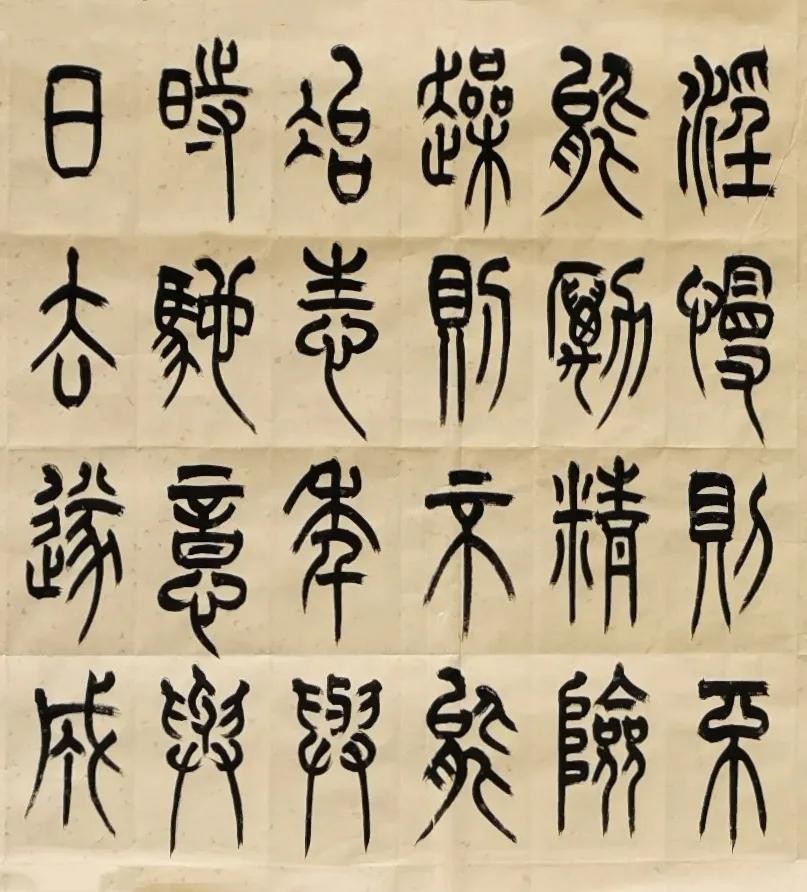 淫慢則不
能勵精險
趮則不能
冶性年與
時馳意與
日去遂成